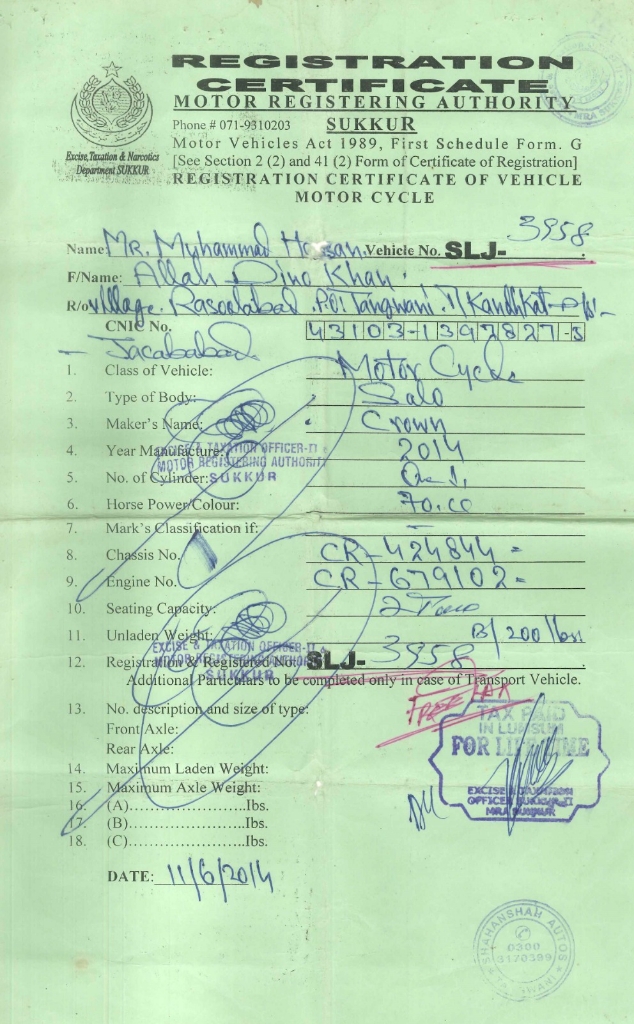 REGISTRATION
CERTIFICATE
MOTOR REGISTERING AUTHORITY
Phone # 071-9310203 SUKKUR
Motor Vehicles Act 1989, First Schedule Form. G
[See Section 2 (2) and 41 (2) Form of Certificate of Registration]
REGISTRATION CERTIFICATE OF VEHICLE
MOTOR CYCLE
Excise, Taxation & Narcotics
Department SUKKUR
Name: Mr. Muhammad Hassan Vehicle No. SLJ- 3958
F/Name: Allah Dino Khan
R/o village Rasoolabad P.O: Tangwani T/Kandhkot
CNIC No. 43103-1392827-3
Jacababad
1. Class of Vehicle: Motor Cycle
2. Type of Body: Solo
3. Maker's Name: Crown
4. Year Manufacture: 2014
5. No. of Cylinder: One
6. Horse Power/Colour: 70.cc
7. Mark's Classification if: –
8. Chassis No. CR-424844 =
9. Engine No. CR-679102 =
10. Seating Capacity: 2 Two
11. Unladen Weight: B/200 lbs:
12. Registration & Registered No. SLJ- 3958
Additional Particulars to be completed only in case of Transport Vehicle.
13. No. description and size of type:
Front Axle:
Rear Axle:
14. Maximum Laden Weight:
15. Maximum Axle Weight:
16. (A)......................Ibs.
17. (B)......................Ibs.
18. (C)......................Ibs.
DATE: 11/6/2014
EXCISE & TAXATION OFFICER-II
MOTOR REGISTERING AUTHORITY
SUKKUR
EXCISE & TAXATION OFFICER-II
MOTOR REGISTERING AUTHORITY
SUKKUR
TAX PAID
IN LUMSUM
FOR LIFE TIME
EXCISE & TAXATION
OFFICER SUKKUR-II
MRA SUKKUR
SHAHANSHAH AUTOS
0300
3170399